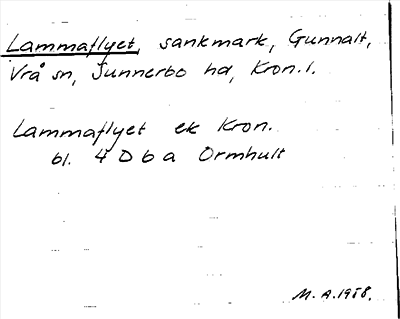 Lammaflyet, sankmark, Gunnalt,
Vrå sn, Sunnerbo hd, Kron. l.
Lammaflyet ek Kron.
bl. 4 D b a Ormhult
M. A. 1958.